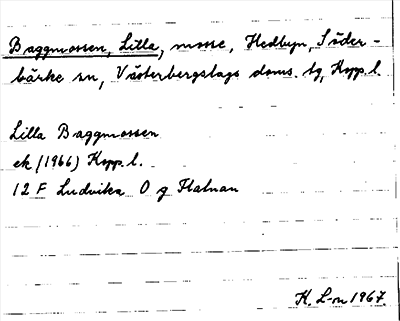 Baggmossen, Lilla, mosse, Hedbyn, Söder-
bärke sn, Västerbergslags doms. tg, Kopp. l.
Lilla Baggmossen
ek (1966) Kopp. l.
12 F Ludvika O g Halvan
K. L-n 1967.